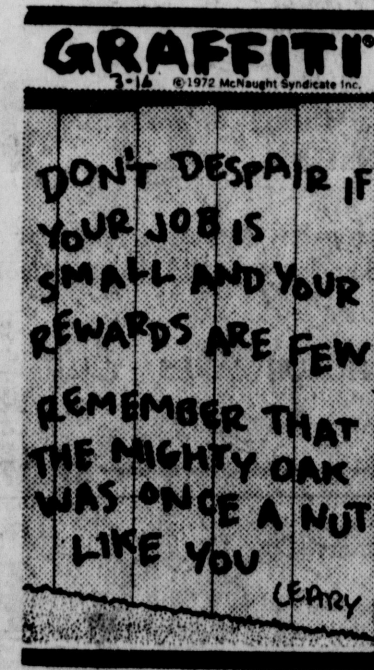 GRAFFITI®
3-16 ©1972 McNaught Syndicate Inc.
DON'T DESPAIR IF
YOUR JOB IS
SMALL AND YOUR
REWARDS ARE FEW
REMEMBER THAT
THE MIGHTY OAK
WAS ONCE A NUT
LIKE YOU
LEARY